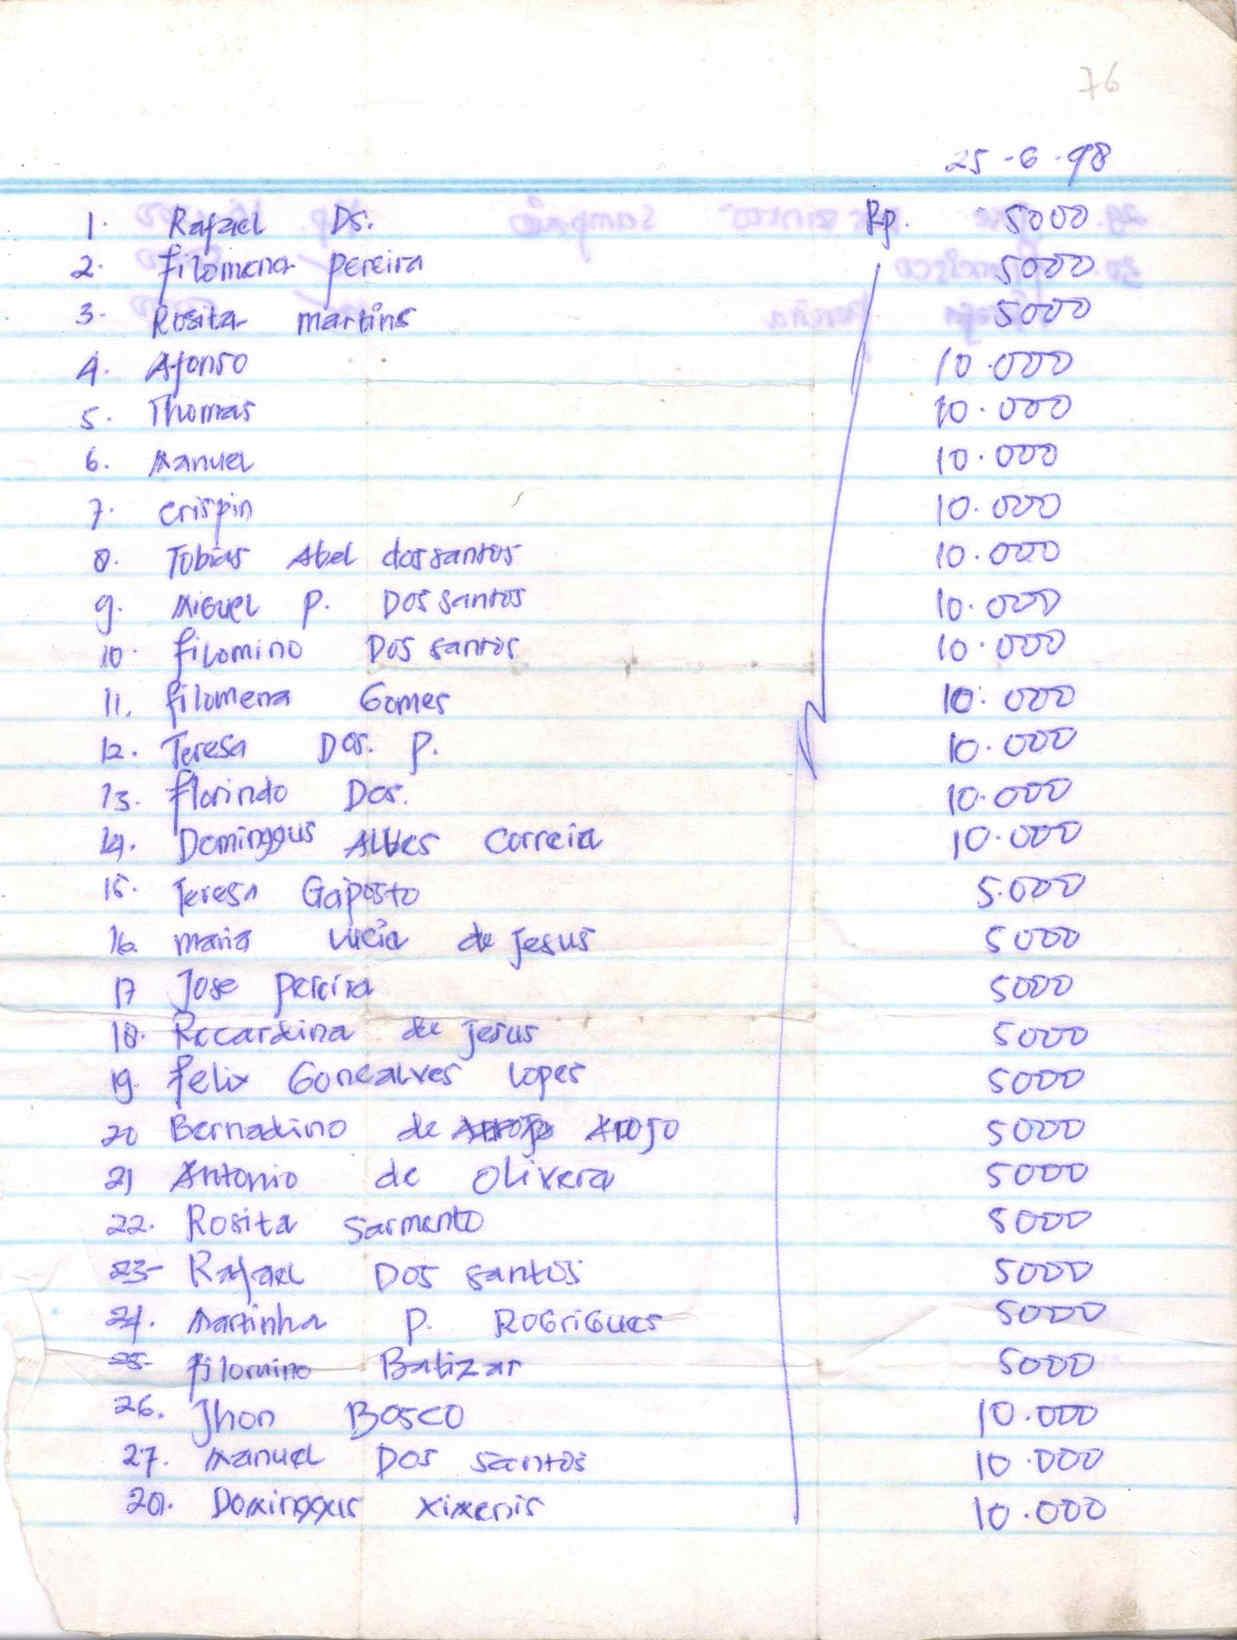 76
25-6-98
1. Rafael Ds. Rp. 5000
2. filomena pereira 5000
3. Rosita martins 5000
4. Afonso 10.000
5. Thomas 10.000
6. Manuel 10.000
7. crispin 10.000
8. Tobias Abel dossantos 10.000
9. Miguel P. Dos santos 10.000
10. filomino Dos santos 10.000
11. filomena Gomes 10.000
12. Teresa Dos. P. 10.000
13. florindo Dos. 10.000
14. Dominggus Alves Correia 10.000
15. Teresa Gaposto 5.000
16. maria lucia de Jesus 5000
17 Jose pereira 5000
18. Rccardina de jesus 5000
19. felix Goncalves lopes 5000
20 Bernadino de Arojo 5000
21 Antonio de Olivera 5000
22. Rosita sarmento 5000
23- Rafael Dos santos 5000
24. Martinha P. RoGriGues 5000
25- filomino Batizar 5000
26. Jhon Bosco 10.000
27. Manuel Dos santos 10.000
28. Dominggus ximenis 10.000